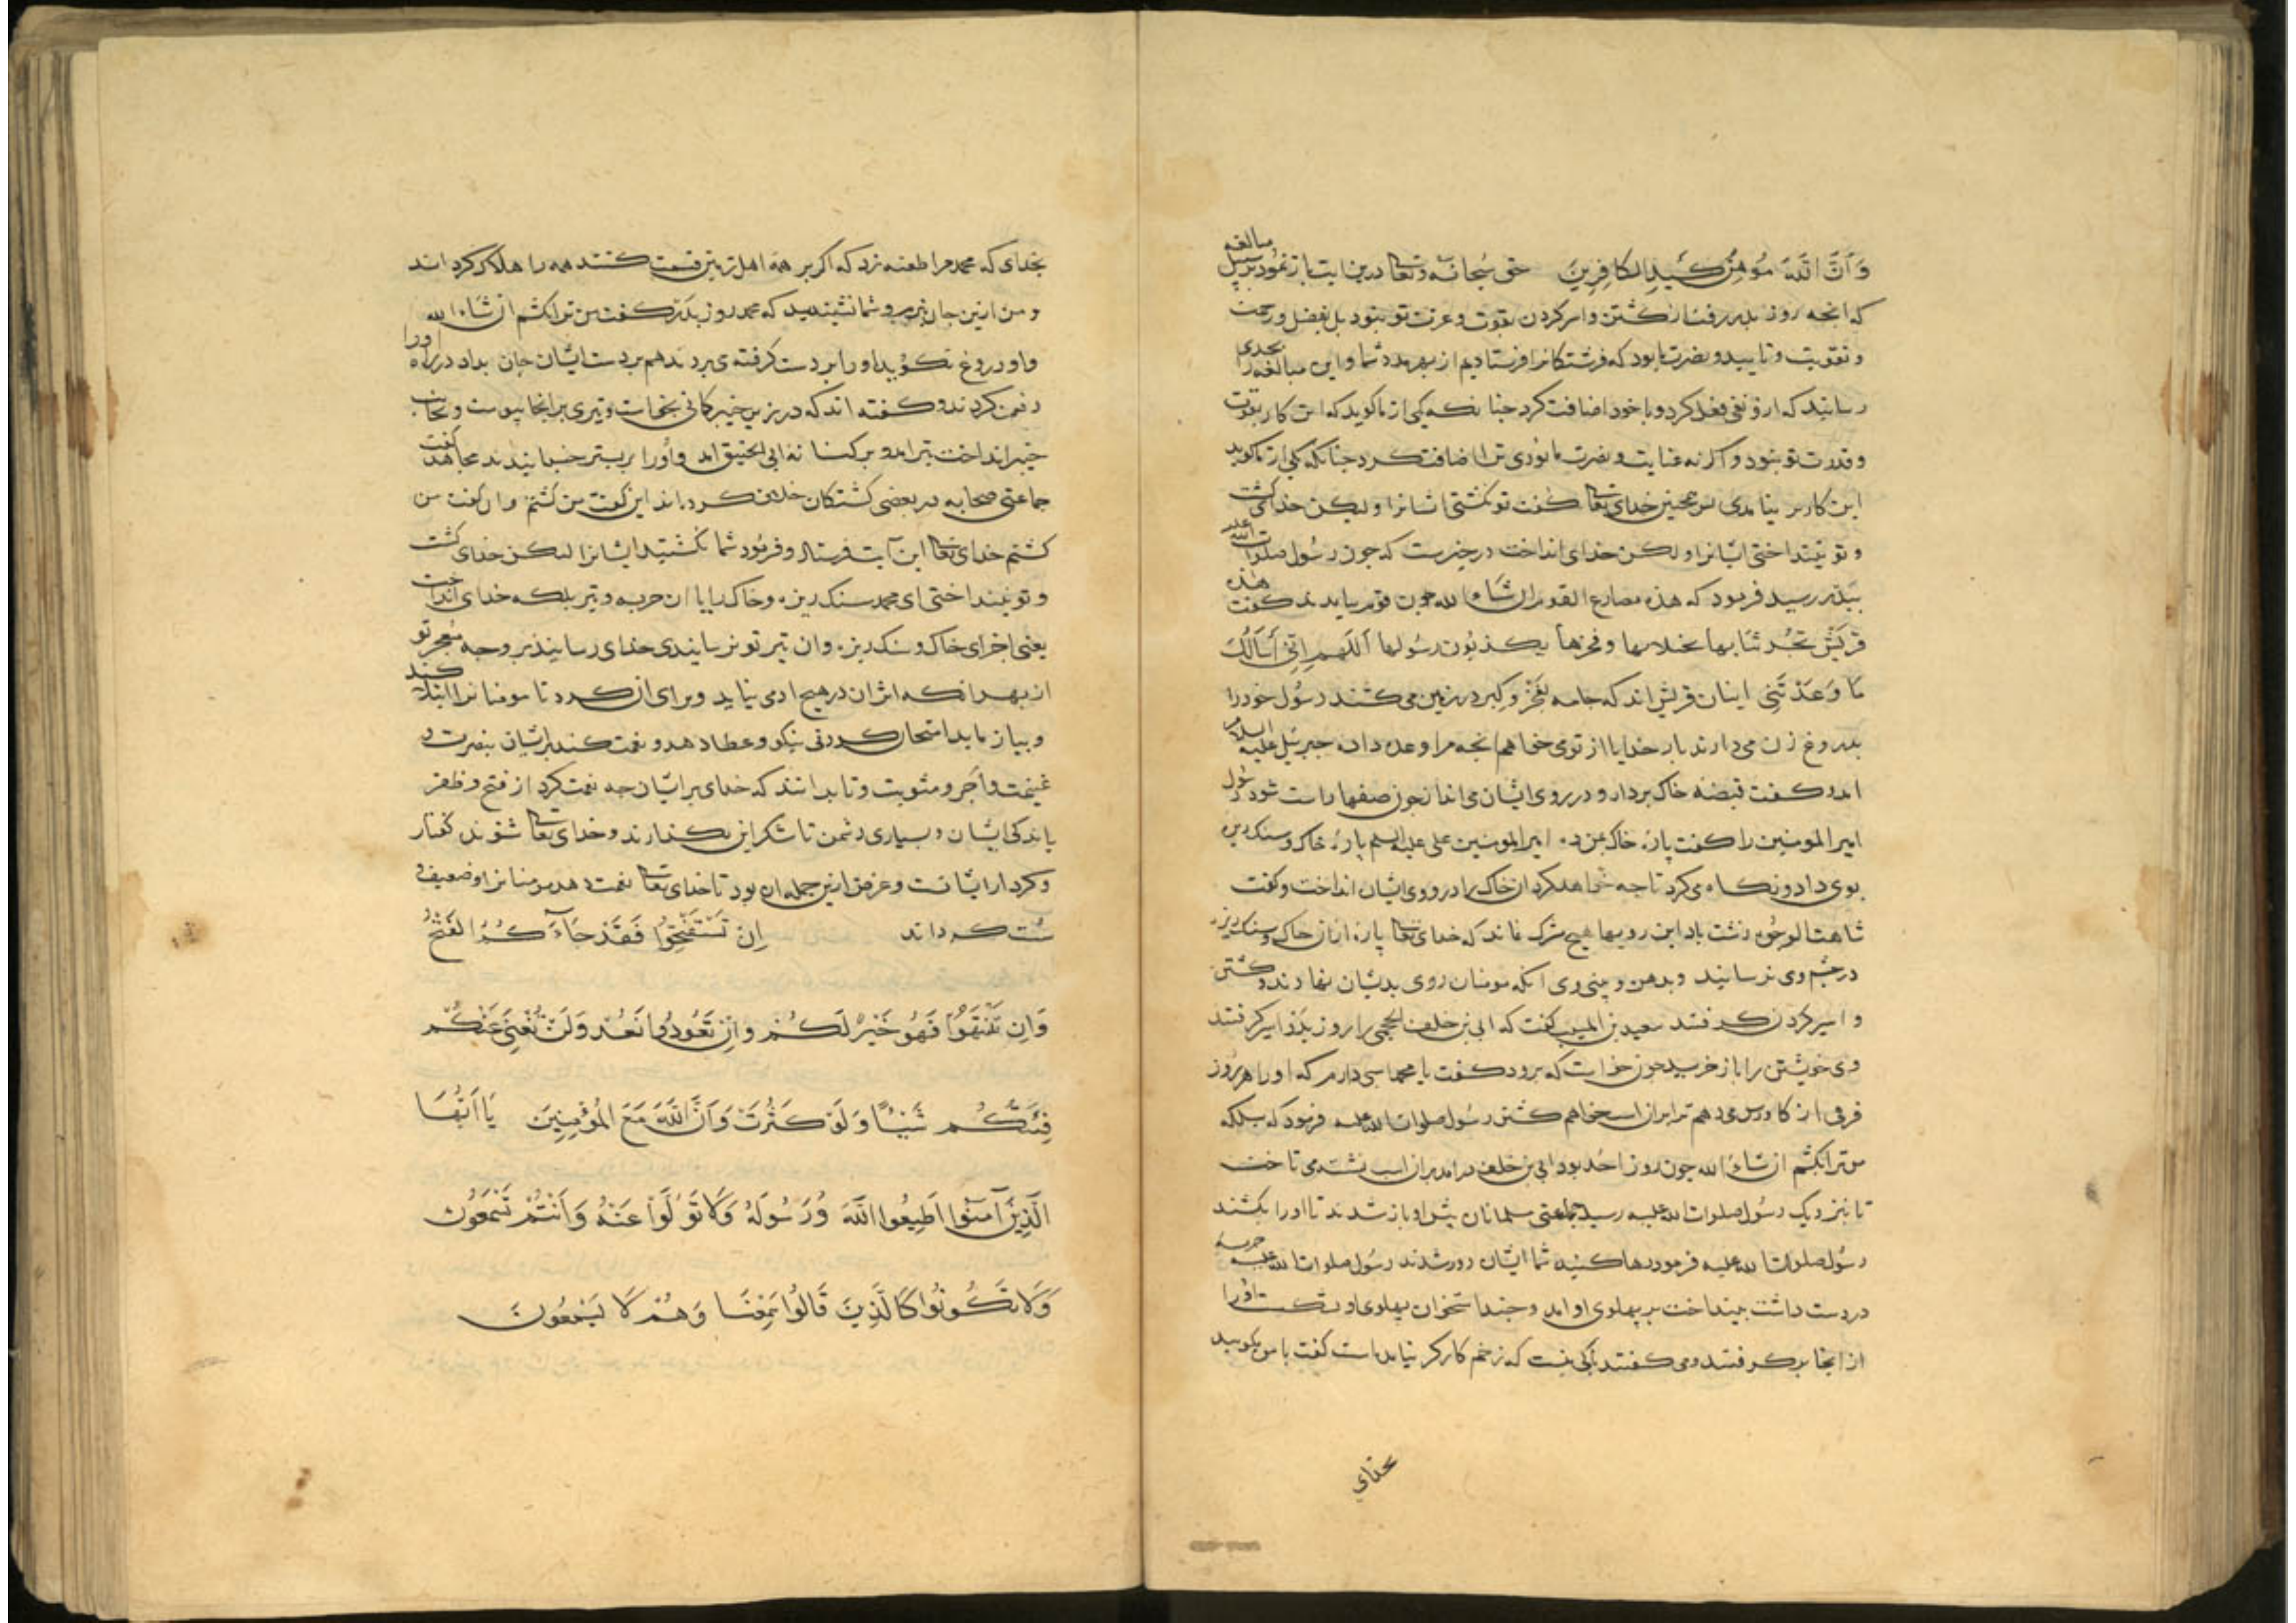 وَاَنَّ اللّٰهَ مُوهِنُ كَيْدِ الْكَافِرِينَ حق سبحانه وتعالى درین ایت باز نمود بر سبیل مبالغه
که انجه روز بدر رفت از کشتن واسر کردن بقوت وعزت تو نبود بل بفضل ورحمت
وتقویت وتایید ونصرت ما بود که فرشتکانرا فرستادیم از بهر مدد شما واین مبالغه را بحدی
رسانید که ازو نفی فعل کرد وبا خود اضافت کرد جنانکه یکی از ما کوید که این کار بقوت
وقدرت تو نبود واکر نه عنایت ونصرت ما بودی ترا اضافت کرد جنانکه یکی از ما کوید
این کار بر نیامدی همجنین خدای تعالى کفت تو نکشتی اشانرا ولیکن خدای کشت
وتو نینداختی ایشانرا ولکن خدای انداخت در خبرست که جون رسول صلوات الله علیه
ببدر رسید فرمود که هذه مصارع القوم ان شاء الله جون قوم بیامدند کفت هذه
قریش تجر ثیابها بخیلایها وفخرها یکذبون رسولها اللهم انی اسالک
ما وعدتنی اینان قریش اند که جامه بفخر وکبر در زمین می کشند رسول خود را
بدروغ زن می دارند بار خدایا از تو می خواهم انجه مرا وعده داده جبرئیل علیه السلام
امد وکفت قبضه خاک بردار ودر روی ایشان می انداز جون صفها راست شود رسول
امیر المومنین را کفت پارهٔ خاک بمن ده امیر المومنین علی علیه السلم پارهٔ خاک وسنک ریزه
بوی داد ونکاه می کرد تا جه خواهد کرد ان خاک را در روی ایشان انداخت وکفت
شاهت الوجوه زشت باد این رویها هیج مشرک نماند که خدای تعالى پارهٔ ازان خاک وسنک ریزه
در جشم وی نرسانید وبدهن وبینی وی انکه مومنان روی بدیشان نهادند وکشتن
واسیر کردن کرفتند سعید بن المسیب کفت که ابی بن خلف الجمحی را روز بدر اسیر کرفتند
وی خویشتن را باز خرید جون خواست که برود کفت یا محمد اسبی دارم که اورا هر روز
فرقی از کاورس می دهم ترا بران اسب خواهم کشتن رسول صلوات الله علیه فرمود که بلکه
من ترا بکشم ان شاء الله جون روز احد بود ابی بن خلف در امد بران اسب نشسته می تاخت
تا بنزدیک رسول صلوات الله علیه رسید جماعتی مسلمانان پیش او باز شدند تا اورا بکشند
رسول صلوات الله علیه فرمود رها کنید شما ایشان دور شدند رسول صلوات الله علیه حربه
در دست داشت بینداخت بر پهلوی او امد وجند استخوان پهلوی او بشکست اورا
از انجا بر کرفتند ومی کفتند باکی نیست که زخم کارکر نیامده است کفت با من مکویید
بخدای
بخدای که محمد مرا طعنه زد که اکر بر همه اهل زمین قسمت کنند همه را هلاک کرداند
ومن ازین جان نبرم وشما نشنیدید که محمد روز بدر کفت من ترا بکشم ان شاء الله
واو دروغ نکوید اورا بر دست کرفته می بردند هم بر دست ایشان جان بداد در راه اورا
دفن کردند وکفته اند که در روز خیبر کمانی بخواست وتیری بر انجا پیوست وبجانب
خیبر انداخت تیر امد وبر کنانه ابی الحقیق امد واورا بر بستر خسبانیدند مجاهد کفت
جماعتی صحابه در بعضی کشتکان خلاف کردند این کفت من کشتم وان کفت من
کشتم خدای تعالى این آیت فرستاد وفرمود شما نکشتید ایشانرا لیکن خدای کشت
وتو نینداختی ای محمد سنک ریزه وخاک را یا ان حربه وتیر بلکه خدای انداخت
یعنی اجزای خاک وسنک ریزه وان تیر تو نرسانیدی خدای رسانید بر وجه معجز تو
از بهر انکه اثر ان در هیج ادمی نیاید وبرای ان کرد تا مومنانرا ابتلا کند
وبیازماید امتحان کردنی نیکو وعطا دهد ونعمت کند بر ایشان بنصرت و
غنیمت واجر ومثوبت وتا بدانند که خدای بر ایشان جه نعمت کرد از فتح وظفر
با اندکی ایشان وبسیاری دشمن تا شکر این بکذارند وخدای تعالى شنوند کفتار
وکردار ایشانست وغرض ازین جمله ان بود تا خدای تعالى نعمت دهد مومنانرا وضعیف و
سست کرداند اِنْ تَسْتَفْتِحُوا فَقَدْ جَاءَكُمُ الْفَتْحُ
وَاِنْ تَنْتَهُوا فَهُوَ خَيْرٌ لَكُمْ وَاِنْ تَعُودُوا نَعُدْ وَلَنْ تُغْنِيَ عَنْكُمْ
فِئَتُكُمْ شَيْئًا وَلَوْ كَثُرَتْ وَاَنَّ اللّٰهَ مَعَ الْمُؤْمِنِينَ يَا اَيُّهَا
الَّذِينَ آمَنُوا اَطِيعُوا اللّٰهَ وَرَسُولَهُ وَلَا تَوَلَّوْا عَنْهُ وَاَنْتُمْ تَسْمَعُونَ
وَلَا تَكُونُوا كَالَّذِينَ قَالُوا سَمِعْنَا وَهُمْ لَا يَسْمَعُونَ